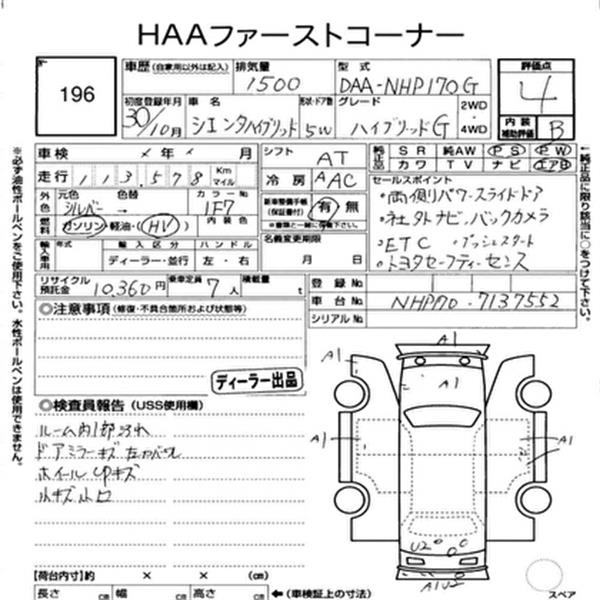 HAAファーストコーナー
196
車歴(自家用以外は記入) 排気量 型式 評価点
1500 DAA-NHP170G 4
初度登録年月 車名 形状・ドア数 グレード 2WD
30/10月 シエンタハイブリッド 5W ハイブリッドG 4WD
内装補助評価 B
車検 × 年 × 月 シフト AT
純正品 SR 純AW PS PW
カワ TV ナビ エアB
走行 113,578 Km マイル 冷房 AAC
セールスポイント
外色 元色 色替 カラーNo
シルバー → 1F7
新車整備手帳(保証書付) 有 無
※書類と一緒に搬出下さい。
・両側パワースライドドア
・社外ナビ、バックカメラ
・ETC ・プッシュスタート
・トヨタセーフティーセンス
燃料 ガソリン・軽油・(HV) 内装色
名義変更期限
月 日
輸入車用 年式 輸入区分 ハンドル
ディーラー・並行 左・右
リサイクル預託金 10,360円 乗車定員 7人 積載量 t
登録No
車台No NHP170-7137552
シリアルNo
◎注意事項(修復・不具合箇所および状態等)
ディーラー出品
◎検査員報告(USS使用欄)
ルーム内1部汚れ
ドアミラーキズ 左カバー
ホイールCPキズ
小キズ小凹
A1
A1
A1
A1
A1
U2
A1U2
スペア
【荷台内寸】約 × × (cm)
長さ cm 幅 cm 高さ cm ←(車検証上の寸法)
※必ず油性ボールペンをご使用下さい。水性ボールペンは使用できません。
←純正品に限り該当に○をつけて下さい。